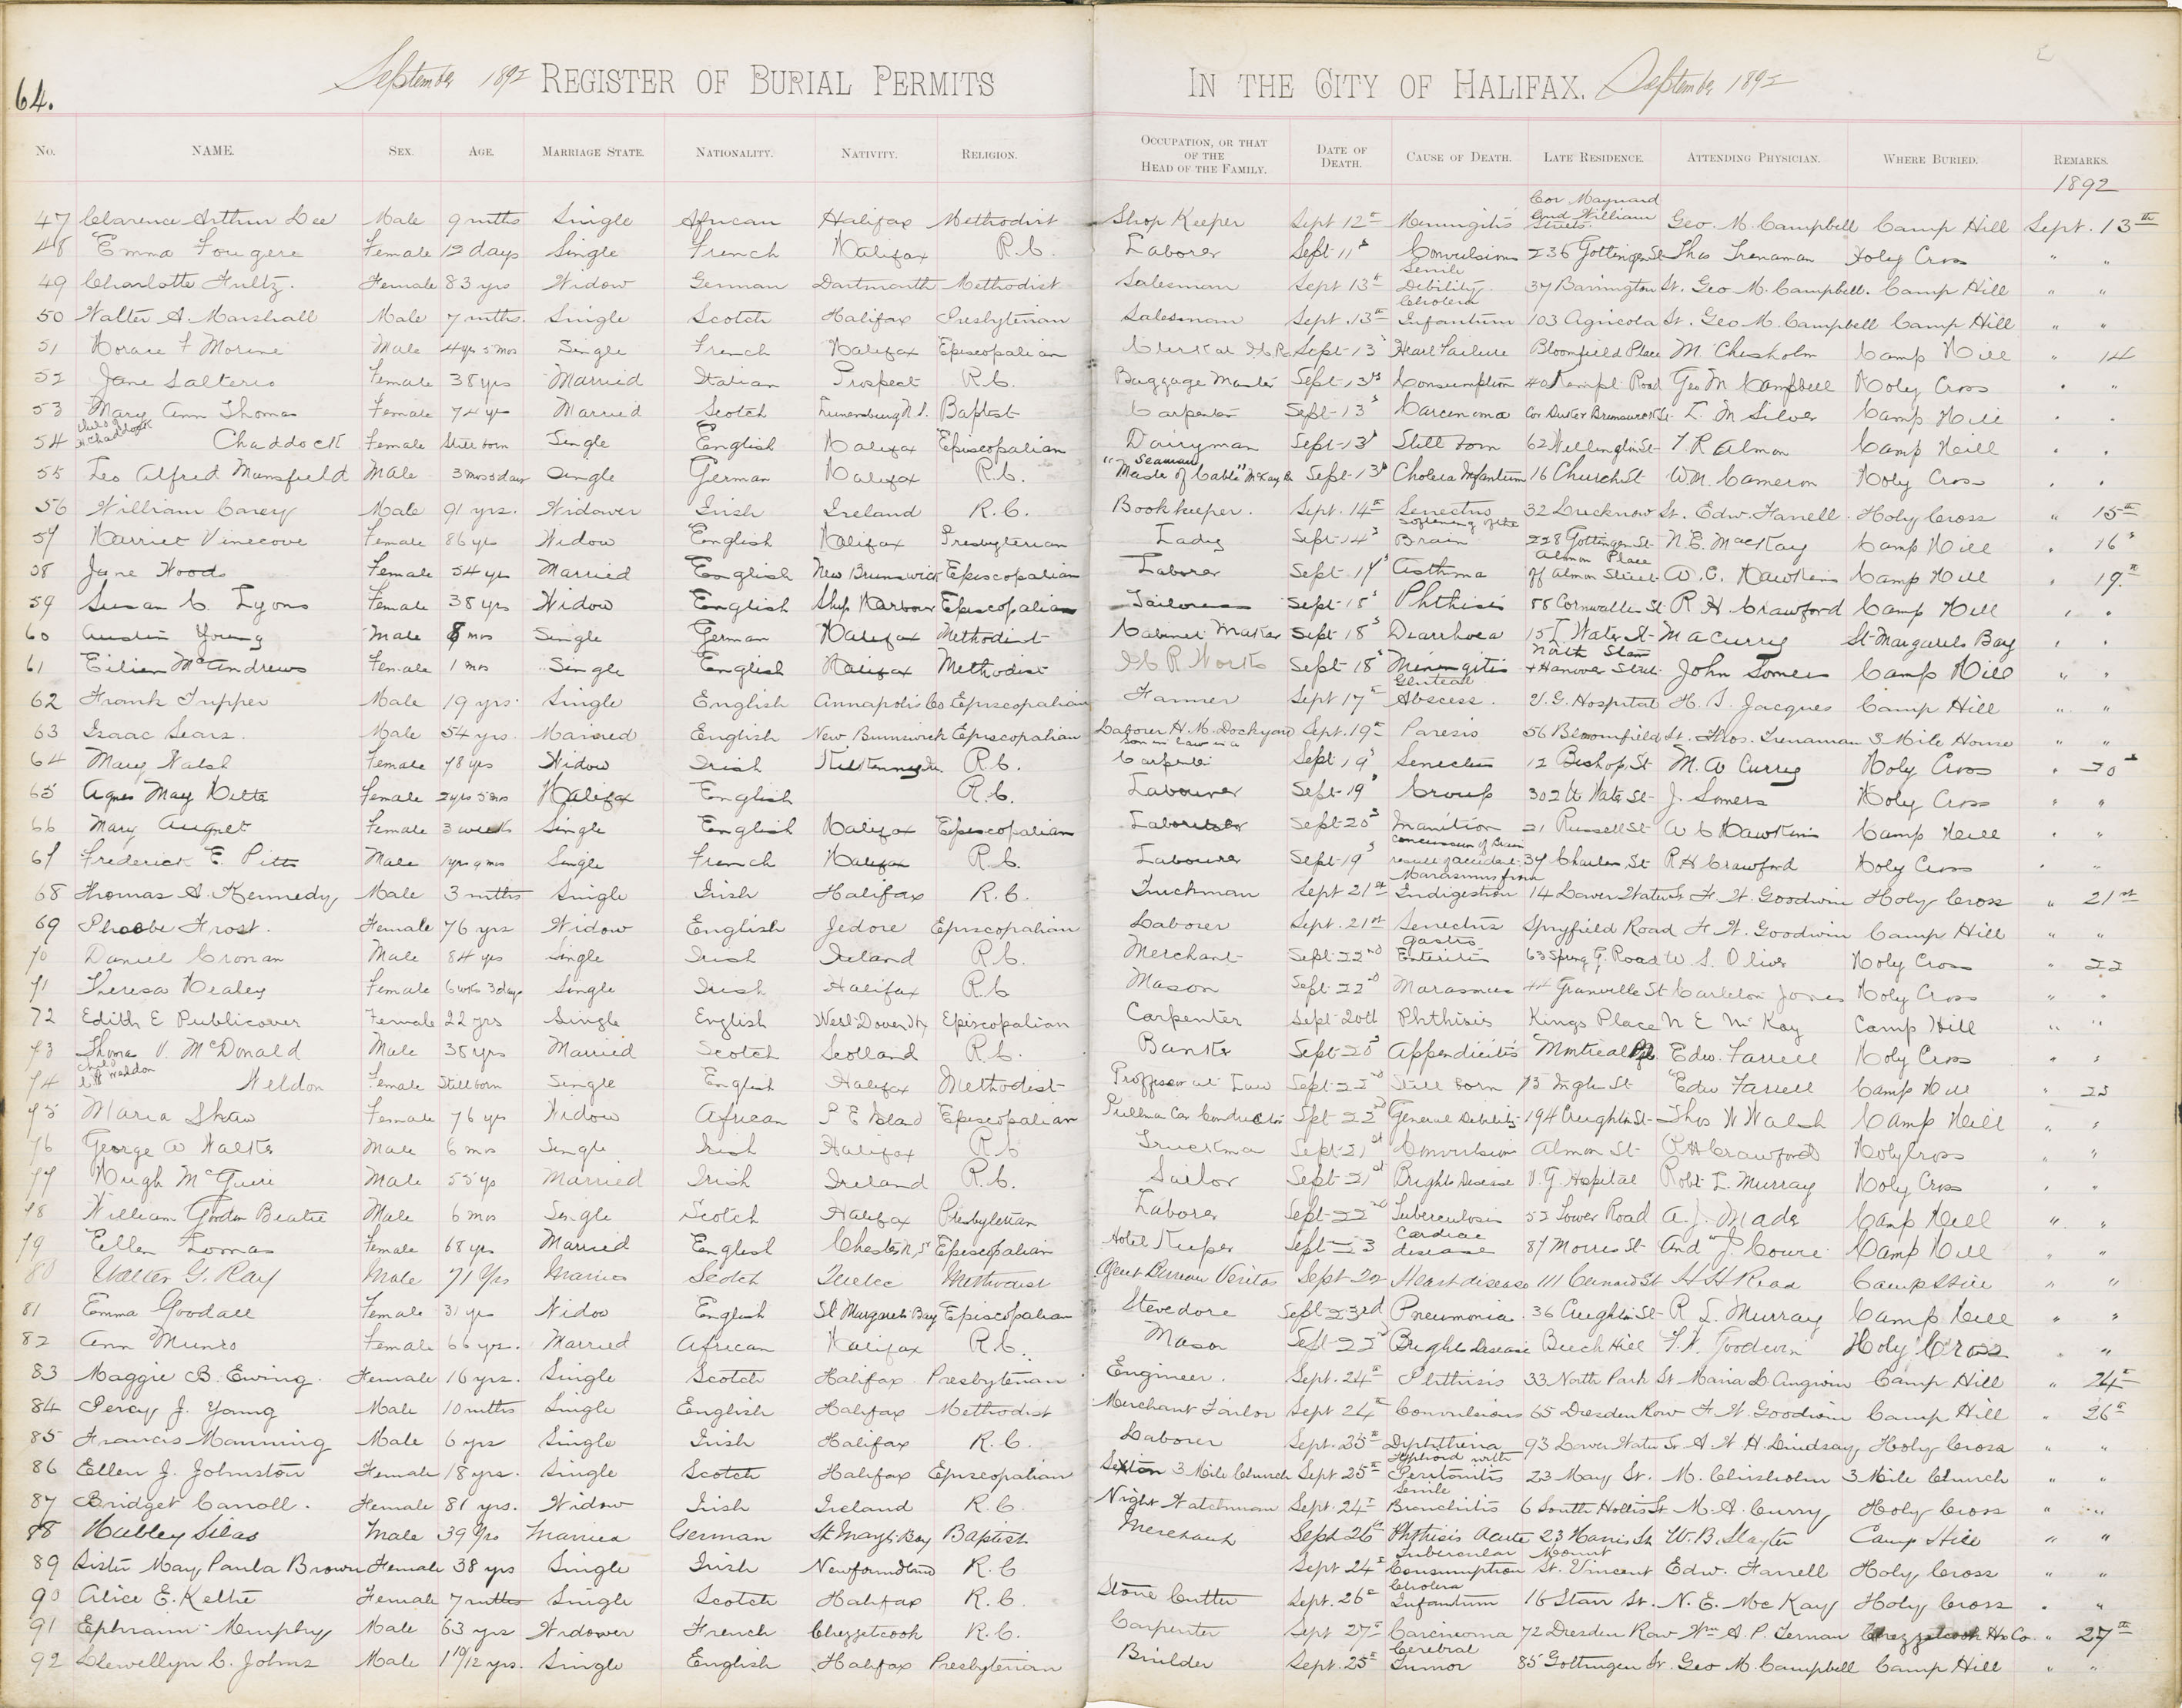 64.
September 1892 REGISTER OF BURIAL PERMITS IN THE CITY OF HALIFAX. September 1892
No. NAME. SEX. AGE. MARRIAGE STATE. NATIONALITY. NATIVITY. RELIGION. OCCUPATION, OR THAT OF THE HEAD OF THE FAMILY. DATE OF DEATH. CAUSE OF DEATH. LATE RESIDENCE. ATTENDING PHYSICIAN. WHERE BURIED. REMARKS.
1892
47 Clarence Arthur Lee Male 9 mths Single African Halifax Methodist Shop Keeper Sept 12th Meningitis Cor Maynard and William Streets. Geo. M. Campbell Camp Hill Sept. 13th
48 Emma Fougere Female 12 days Single French Halifax R.C. Laborer Sept 11th Convulsions 236 Gottingen St Thos Trenaman Holy Cross " "
49 Charlotte Fultz. Female 83 yrs Widow German Dartmouth Methodist Salesman Sept 13th Senile Debility. 37 Barrington St. Geo M. Campbell. Camp Hill " "
50 Walter A. Marshall Male 7 mths. Single Scotch Halifax Presbyterian Salesman Sept. 13th Cholera Infantum 103 Agricola St. Geo M. Campbell Camp Hill " "
51 Horace F Morine Male 4 yrs 5 mos Single French Halifax Episcopalian Clerk at Sept 13 Heart Failure Bloomfield Place M. Chisholm Camp Hill " 14
52 Jane Salterio Female 38 yrs Married Italian Prospect R.C. Baggage Master Sept 13th Consumption Kempt Road Geo M Campbell Holy Cross " "
53 Mary Ann Thomas Female 74 yrs Married Scotch Lunenburg N.S. Baptist Carpenter Sept 13 Carcinoma Cor Brunswick St. L. M Silver Camp Hill " "
54 Child of Chaddock Chaddock Female Still born Single English Halifax Episcopalian Dairyman Sept 13 Still born 62 Wellington St T R Almon Camp Hill " "
55 Leo Alfred Mansfield Male 3 mos 3 days Single German Halifax R.C. "Seaman of Cable" McKay B Sept 13 Cholera Infantum 16 Church St W.M. Cameron Holy Cross " "
56 William Carey Male 91 yrs. Widower Irish Ireland R.C. Bookkeeper. Sept. 14th Senectus 32 Lucknow St. Edw. Farrell Holy Cross " 15th
57 Harriet Vinecove Female 86 yrs Widow English Halifax Presbyterian Lady Sept 14 softening of the Brain 228 Gottingen St N.E. MacKay Camp Hill " 16
58 Jane Woods Female 54 yrs Married English New Brunswick Episcopalian Laborer Sept 17 Asthma Almon Place off Almon Street W.C. Hawkins Camp Hill " 19th
59 Susan C. Lyons Female 38 yrs Widow English Ship Harbour Episcopalian Tailoress Sept 18 Phthisis 58 Cornwallis St R H Crawford Camp Hill " "
60 Austin Young Male 8 mos Single German Halifax Methodist Cabinet Maker Sept 18 Diarrhoea Water St M A Curry St Margarets Bay " "
61 Eilien McAndrews Female 1 mos Single English Halifax Methodist Works Sept 18 Miningitis North Starr & Hanover Street John Somers Camp Hill " "
62 Frank Tupper Male 19 yrs. Single English Annapolis Co Episcopalian Farmer Sept 17th Gluteall Abscess. V.G. Hospital H. S. Jacques Camp Hill " "
63 Isaac Sears. Male 54 yrs. Married English New Brunswick Episcopalian Laborer H.M. Dockyard Sept. 19th Paresis 56 Bloomfield St. Thos. Trenaman 3 Mile House " "
64 Mary Walsh Female 78 yrs Widow Irish Kilkenny Ir. R.C. Son in Law is a Carpenter Sept 19 Senectus 12 Bishop St M. A Curry Holy Cross " 20
65 Agnes May Female 2 yrs 5 mos Halifax English R.C. Labourer Sept 19 Croup 302 U Water St J. Somers Holy Cross " "
66 Mary August Female 3 weeks Single English Halifax Episcopalian Laborer Sept 20 Inanition 21 Russell St W C Hawkins Camp Hill " "
67 Frederick E. Pitts Male 1 yrs 9 mos Single French Halifax R.C. Labourer Sept 19 Concussion of Brain result of accident 37 Charles St R H Crawford Holy Cross " "
68 Thomas A. Kennedy Male 3 mths Single Irish Halifax R.C. Truckman Sept 21st Marasmus from Indigestion 14 Lower Water St F. W. Goodwin Holy Cross " 21st
69 Phoebe Frost. Female 76 yrs Widow English Jedore Episcopalian Laborer Sept. 21st Senectus Spryfield Road F W. Goodwin Camp Hill " "
70 Daniel Cronan Male 84 yrs Single Irish Ireland R.C. Merchant Sept 22nd Gastro Enteritis 63 Spring G. Road W. S. Oliver Holy Cross " 22
71 Theresa Healey Female 6 wks 3 days Single Irish Halifax R.C Mason Sept 22nd Marasmus 44 Granville St Carleton Jones Holy Cross " "
72 Edith E Publicover Female 22 yrs Single English West Dover Hx Episcopalian Carpenter Sept 20th Phthisis Kings Place N E McKay Camp Hill " "
73 Thomas V. McDonald Male 38 yrs Married Scotch Scotland R.C. Banker Sept 20 Appendicitis Montreal Edw. Farrell Holy Cross " "
74 Child Weldon Weldon Female Still born Single English Halifax Methodist Proffessor at Law Sept 22nd Still born 75 Inglis St Edw Farrell Camp Hill " 23
75 Maria Shaw Female 76 yrs Widow African P E Island Episcopalian Pullman Car Conductor Sept 22nd General Debility 194 Creighton St Thos W Walsh Camp Hill " "
76 George W Walker Male 6 mos Single Irish Halifax R.C Truckman Sept 21st Convulsions Almon St R H Crawford Holy Cross " "
77 Hugh McGuire Male 55 yrs Married Irish Ireland R.C. Sailor Sept 21st Brights Disease V.G. Hospital Robt L. Murray Holy Cross " "
78 William Gordon Beattie Male 6 mos Single Scotch Halifax Presbyterian Laborer Sept 22nd Tuberculosis 52 Tower Road A. J. Mader Camp Hill " "
79 Ellen Lomas Female 68 yrs Married English Chester N.S Episcopalian Hotel Keeper Sept 23 Cardiac disease 87 Morris St And J. Cowie Camp Hill " "
80 Walter G. Ray Male 71 Yrs Married Scotch Quebec Methodist Agent Bureau Veritas Sept 22 Heart disease 111 Cunard St H H Read Camp Hill " "
81 Emma Goodall Female 31 yrs Widow English St Margarets Bay Episcopalian Stevedore Sept 23rd Pneumonia 36 Creighton St R L. Murray Camp Hill " "
82 Ann Munro Female 66 yrs. Married African Halifax R.C. Mason Sept 22 Brights Disease Beech Hill F. W. Goodwin Holy Cross " "
83 Maggie B. Ewing. Female 16 yrs. Single Scotch Halifax Presbyterian Engineer. Sept. 24th Phthisis 33 North Park St Maria L. Angwin Camp Hill " 24th
84 Percy J. Young Male 10 mths Single English Halifax Methodist Merchant Tailor Sept 24th Convulsions 65 Dresden Row F W. Goodwin Camp Hill " 26th
85 Francis Manning Male 6 yrs Single Irish Halifax R.C. Laborer Sept. 25th Diphtheria 93 Lower Water St. A W H. Lindsay, Holy Cross " "
86 Ellen J. Johnston Female 18 yrs. Single Scotch Halifax Episcopalian Sexton 3 Mile Church Sept 25th Typhoid with Peritonitis 23 May St. M. Chisholm 3 Mile Church " "
87 Bridget Carroll. Female 81 yrs. Widow Irish Ireland R.C. Night Watchman Sept. 24th Senile Bronchitis 6 South Hollis St. M. A. Curry Holy Cross " "
88 Hubley Silas Male 39 Yrs Married German St Magts Bay Baptist Merchant Sept 26th Phthisis Acute 23 Harris St W. B. Slayter Camp Hill " "
89 Sister May Paula Brown Female 38 yrs Single Irish Newfoundland R.C Sept 24th Tubercular Consumption Mount St. Vincent Edw. Farrell Holy Cross " "
90 Alice E. Keltie Female 7 mths Single Scotch Halifax R.C. Stone Cutter Sept. 26th Cholera Infantum 16 Starr St. N. E. McKay Holy Cross " "
91 Ephraim Murphy Male 63 yrs Widower French Chezzetcook R.C. Carpenter Sept 27th Carcinoma 72 Dresden Row Wm A. P. Ternan Chezzetcook Hx Co. " 27th
92 Llewellyn C. Johns Male 1 10/12 yrs. Single English Halifax Presbyterian Builder Sept. 25th Cerebral Tumor 85 Gottingen St. Geo M. Campbell Camp Hill " "